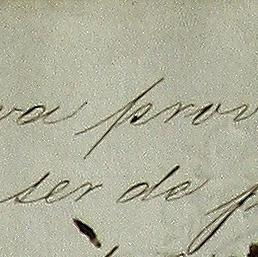 va prov
ser do p